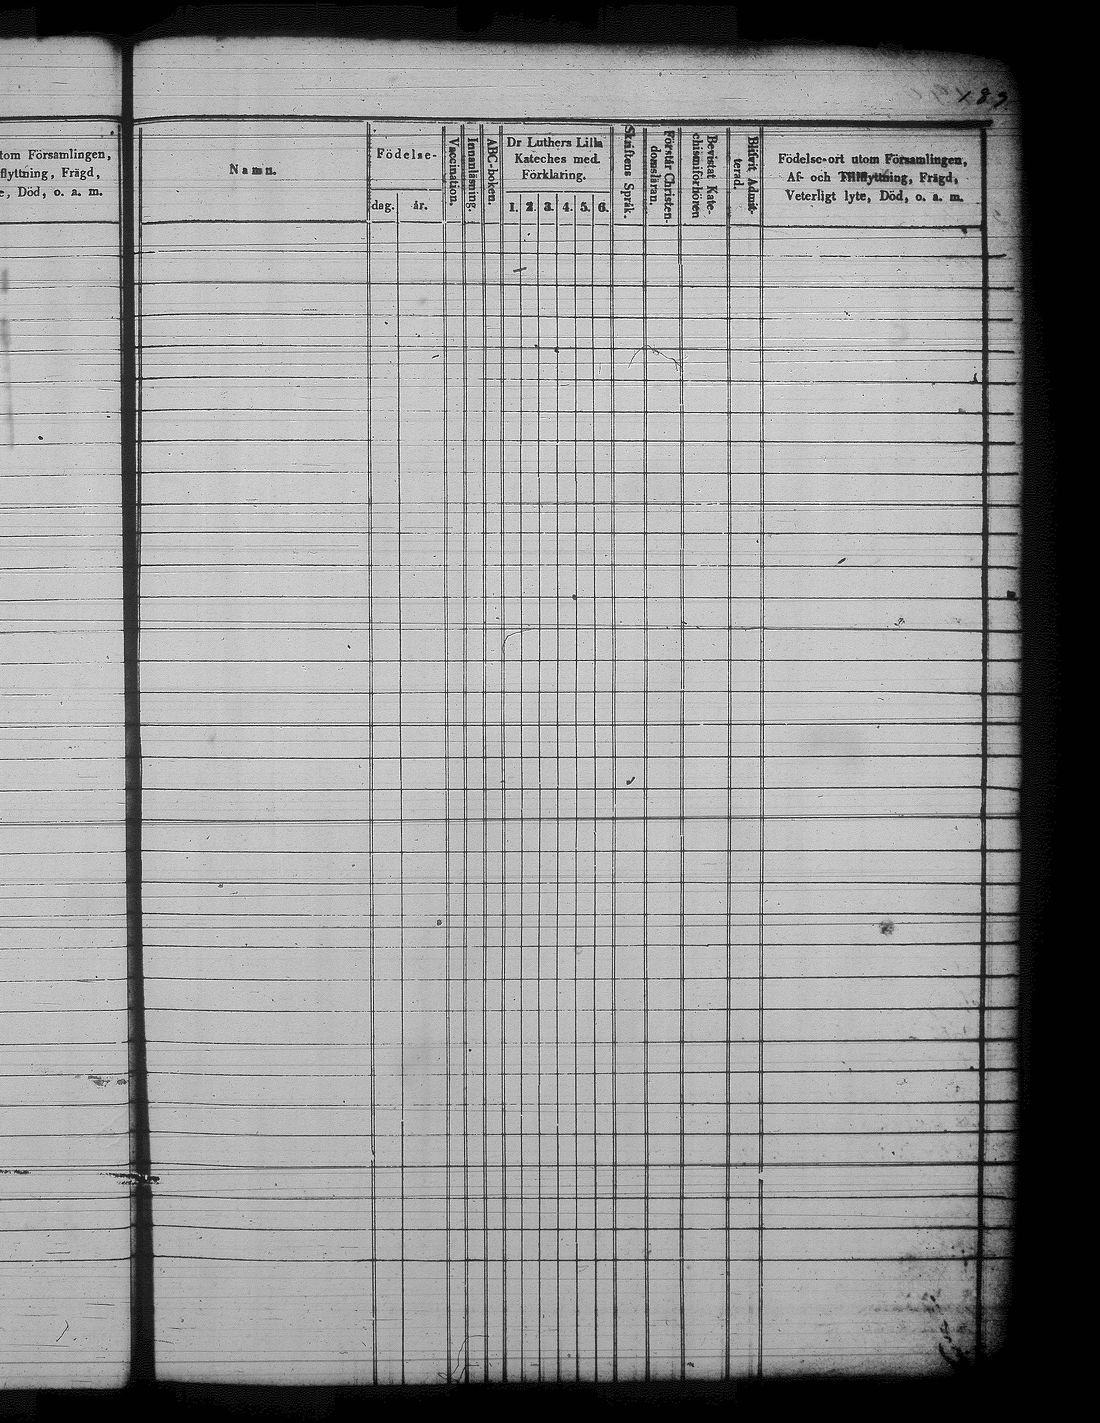 189
tom Församlingen,
flyttning, Frägd,
e, Död, o. a. m.
Namn.
Födelse-
dag. år.
Vaccination.
Innanläsning.
ABC-boken.
Dr Luthers Lilla
Kateches med.
Förklaring.
1. 2. 3. 4. 5. 6.
Skriftens Språk.
Förstår Christen-
domsläran.
Bevistat Kate-
chismiförhören
Blifwit Admit-
terad.
Födelse-ort utom Församlingen,
Af- och Tillflyttning, Frägd,
Veterligt lyte, Död, o. a. m.